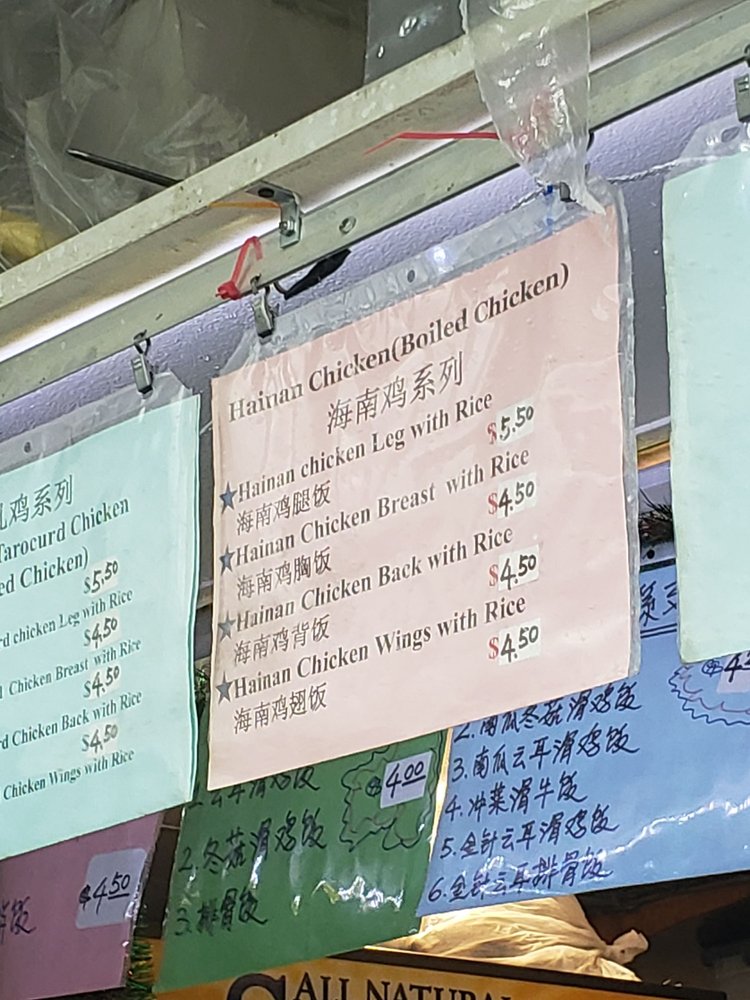 Hainan Chicken(Boiled Chicken)
海南鸡系列
Hainan chicken Leg with Rice
$5.50
海南鸡腿饭
Hainan Chicken Breast with Rice
$4.50
海南鸡胸饭
Hainan Chicken Back with Rice
$4.50
海南鸡背饭
Hainan Chicken Wings with Rice
$4.50
海南鸡翅饭
鸡系列
Tarocurd Chicken
ed Chicken)
$5.50
rd chicken Leg with Rice
$4.50
Chicken Breast with Rice
$4.50
rd Chicken Back with Rice
$4.50
Chicken Wings with Rice
$4.50
饭
$4.00
1. 云耳滑鸡饭
2. 冬菇滑鸡饭
3. 排骨饭
系列
2. 南瓜冬菇滑鸡饭
3. 南瓜云耳滑鸡饭
4. 冲菜滑牛饭
5. 金针云耳滑鸡饭
6. 金针云耳排骨饭
ALL NATURAL